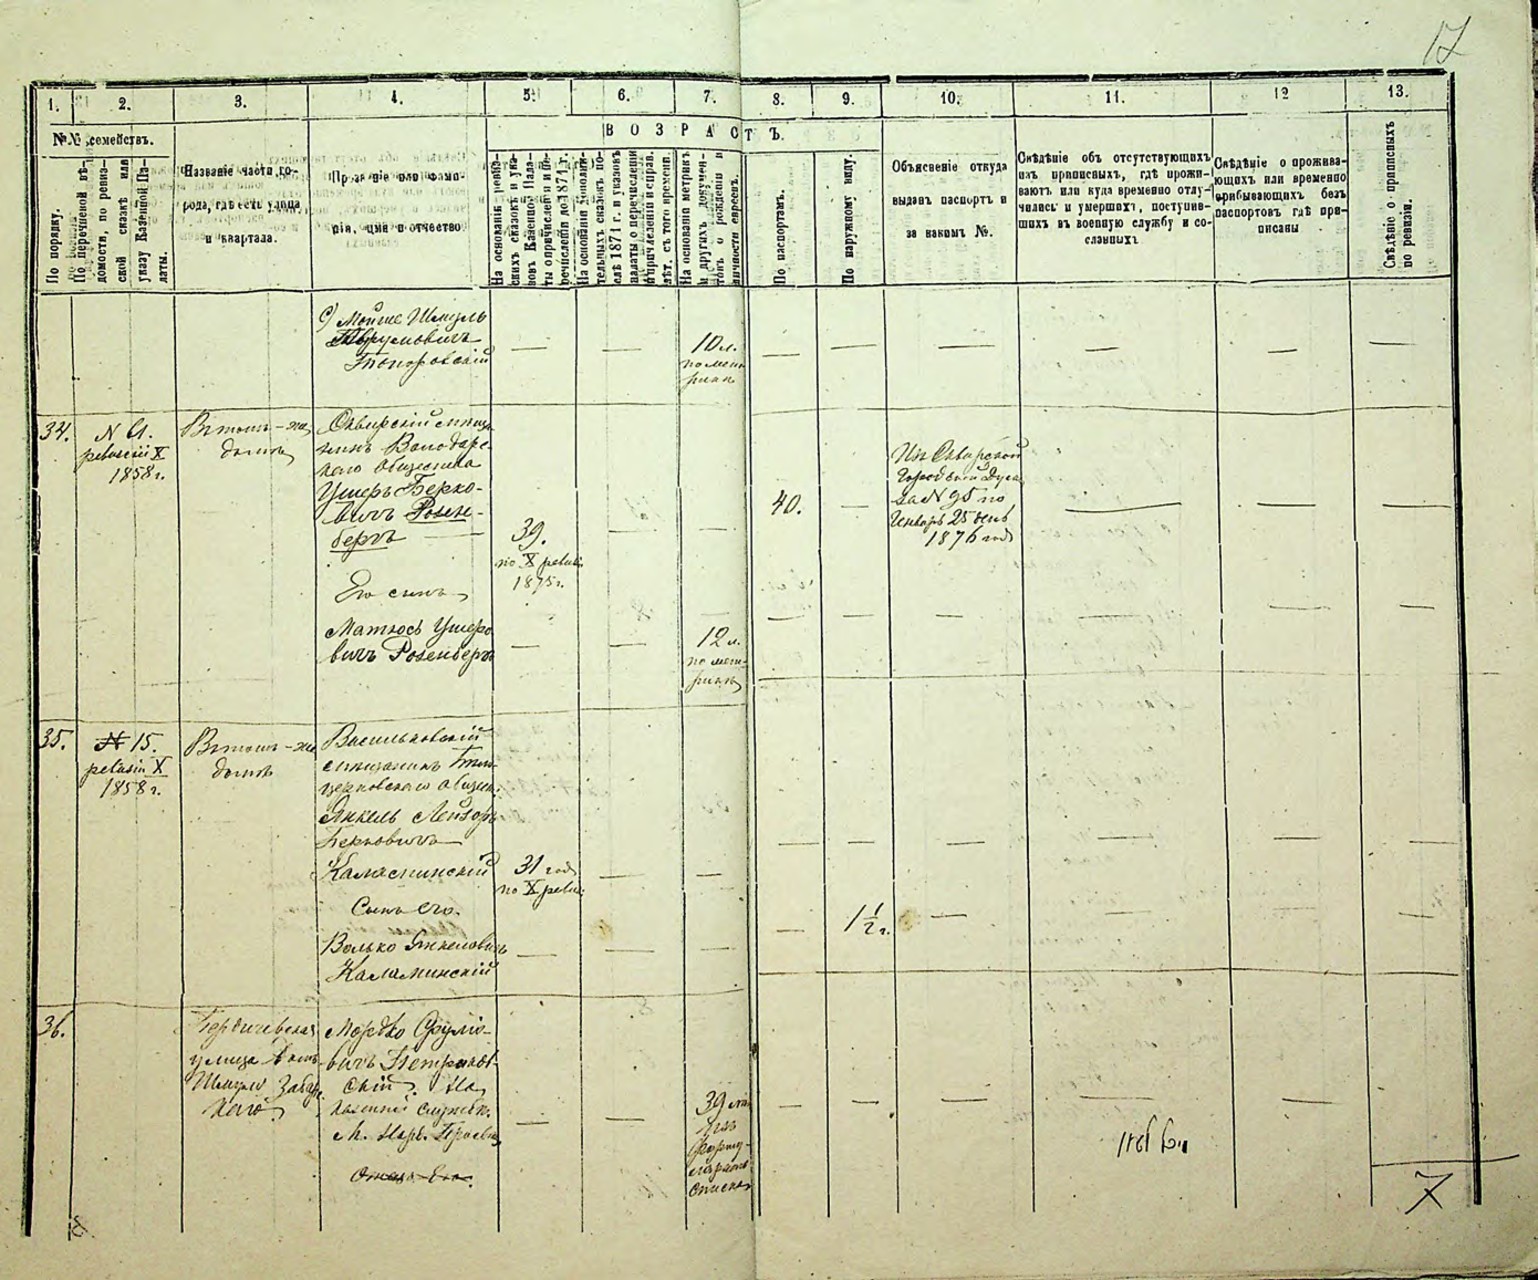 17
1.
2.
3.
4.
5.
6.
7.
8.
9.
10.
11.
12
13.
№№ семействъ.
ВОЗРАСТЪ.
По порядку.
По перечневой вѣ-
домости, по ревиз-
ской сказкѣ или
указу Казенной Па-
латы.
Названіе части го-
рода, гдѣ есть улица
и квартала.
Прозваніе или фами-
лія, имя и отчество
На основаніи ревиз-
скихъ сказокъ и ука-
зовъ Казенной Пала-
ты о причисленіи и пе-
речисленіи до 1871 г.
На основаніи дополни-
тельныхъ сказокъ по-
слѣ 1871 г. и указовъ
палаты о перечисленіи
и причисленіи справ.
лѣт. съ того времени.
На основаніи метрикъ
и другихъ докумен-
товъ о рожденіи и
личности евреевъ.
По паспортамъ.
По наружному виду.
Объясненіе откуда
выданъ паспортъ и
за какимъ №.
Свѣдѣніе объ отсутствующихъ
изъ приписныхъ, гдѣ прожи-
ваютъ или куда временно отлу-
чились и умершихъ, поступив-
шихъ въ военную службу и со-
сланныхъ
Свѣдѣніе о прожива-
ющихъ или временно
прибывающихъ безъ
паспортовъ гдѣ при-
писаны
Свѣдѣніе о приписныхъ
по ревизіи.
Мойше Шмуль
Топоровскій
10 л.
по мет-
рикѣ
34.
ревизіи X
1858 г.
Въ томъ-же
домѣ
Сквирскій мѣща-
нинъ Володарс-
каго общества
Ушеръ Берко-
вичъ Розен-
бергъ
39.
по X ревизі
1875 г.
40.
Изъ Сквирской
Городской Думы
за N 95 по
Январь 25 день
1876 года
Его сынъ
Матюсъ Ушеро
вичъ Розенбергъ
12 л.
по мет-
рикѣ
35.
N 15.
ревизіи X
1858 г.
Въ томъ-же
домѣ
Васильковскій
мѣщанинъ Бѣло-
церковскаго общест.
Янкель Лейзоръ
Берковичъ
Каламинскій
31 годъ
по X ревиз.
Сынъ его.
Волько Янкелевичъ
Каламинскій
1 1/2 г.
36.
Бердичевская
улица домъ
Шмуля Забар
каго
Мордко Фрумо-
вичъ Петриков-
скій. На
казенной службѣ.
39 лѣт
изъ
форму-
лярнаго
списка
7